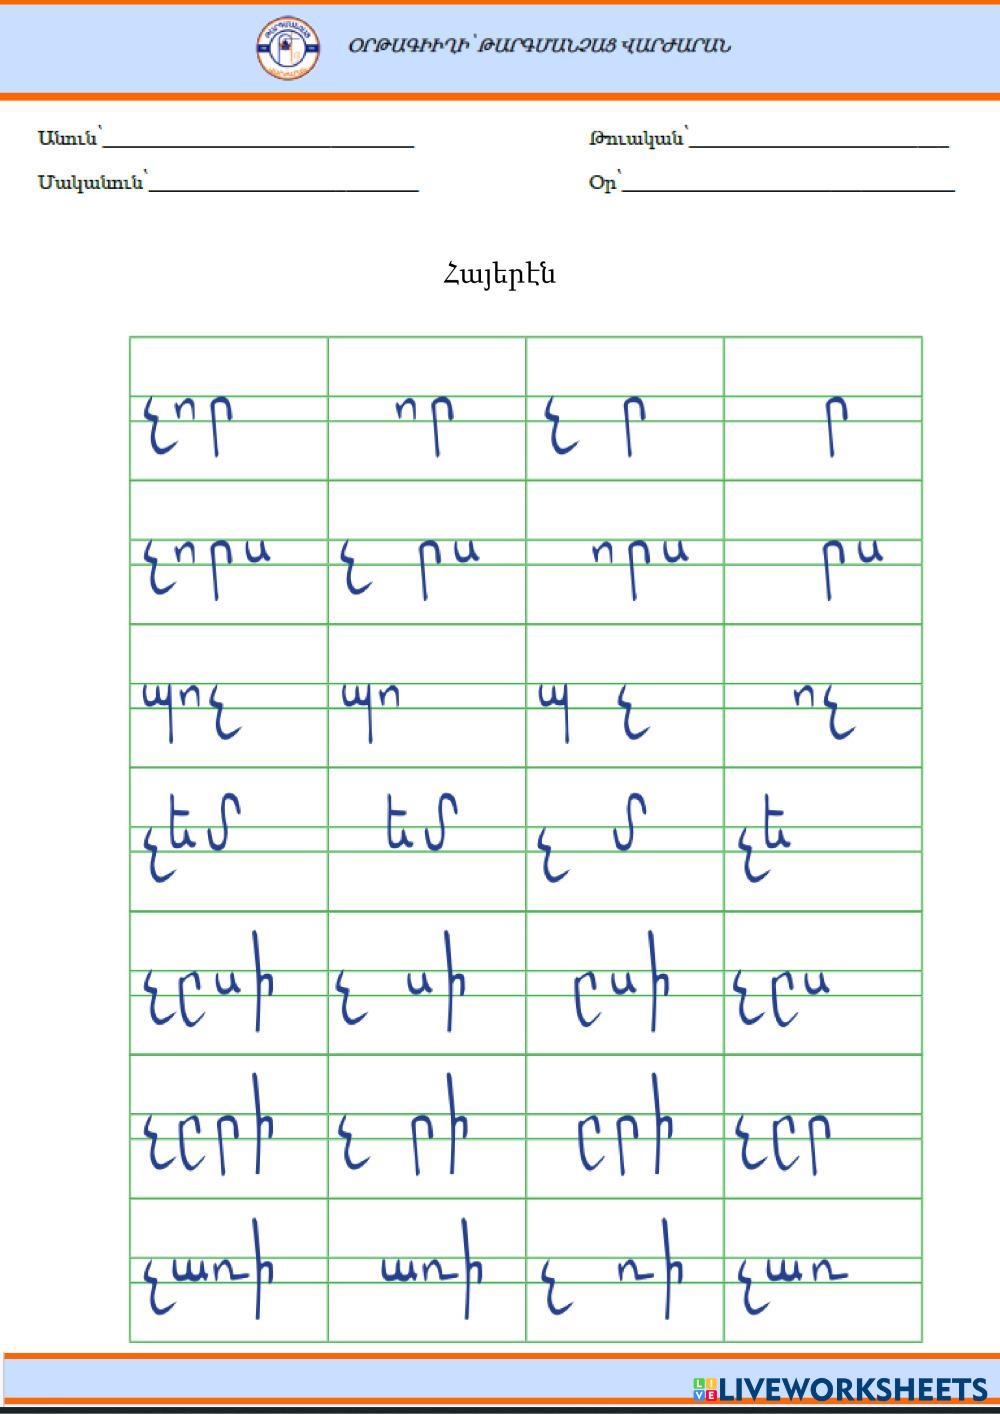 ՕՐԹԱԳԻՒՂԻ՝ ԹԱՐԳՄԱՆՉԱՑ ՎԱՐԺԱՐԱՆ
Անուն՝ Թուական՝
Մականուն՝ Օր՝
Հայերէն
չոր որ չ ր ր
չորս չ րս որս րս
պոչ պո պ չ ոչ
չեմ եմ չ մ չե
չըսի չ սի ըսի չըս
չըրի չ րի ըրի չըր
չառի առի չ ռի չառ
LIVEWORKSHEETS